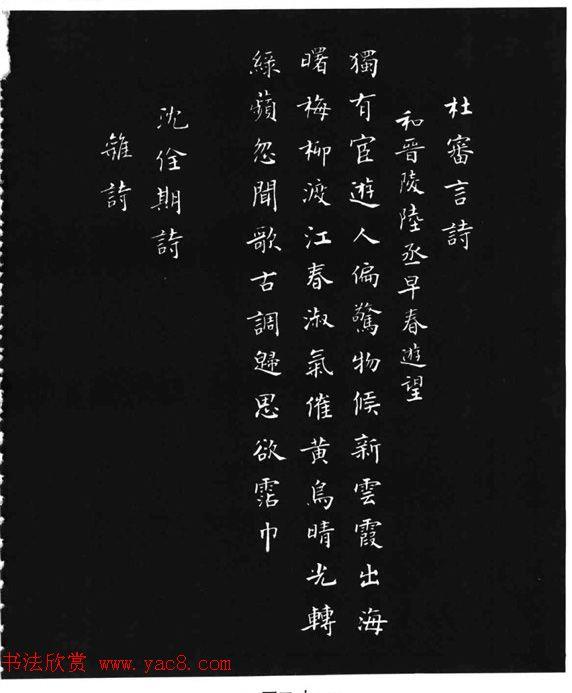 杜審言詩
和晉陵陸丞早春遊望
獨有宦遊人偏驚物候新雲霞出海
曙梅柳渡江春淑氣催黃鳥晴光轉
綠蘋忽聞歌古調歸思欲霑巾
沈佺期詩
雜詩
书法欣赏 www.yac8.com